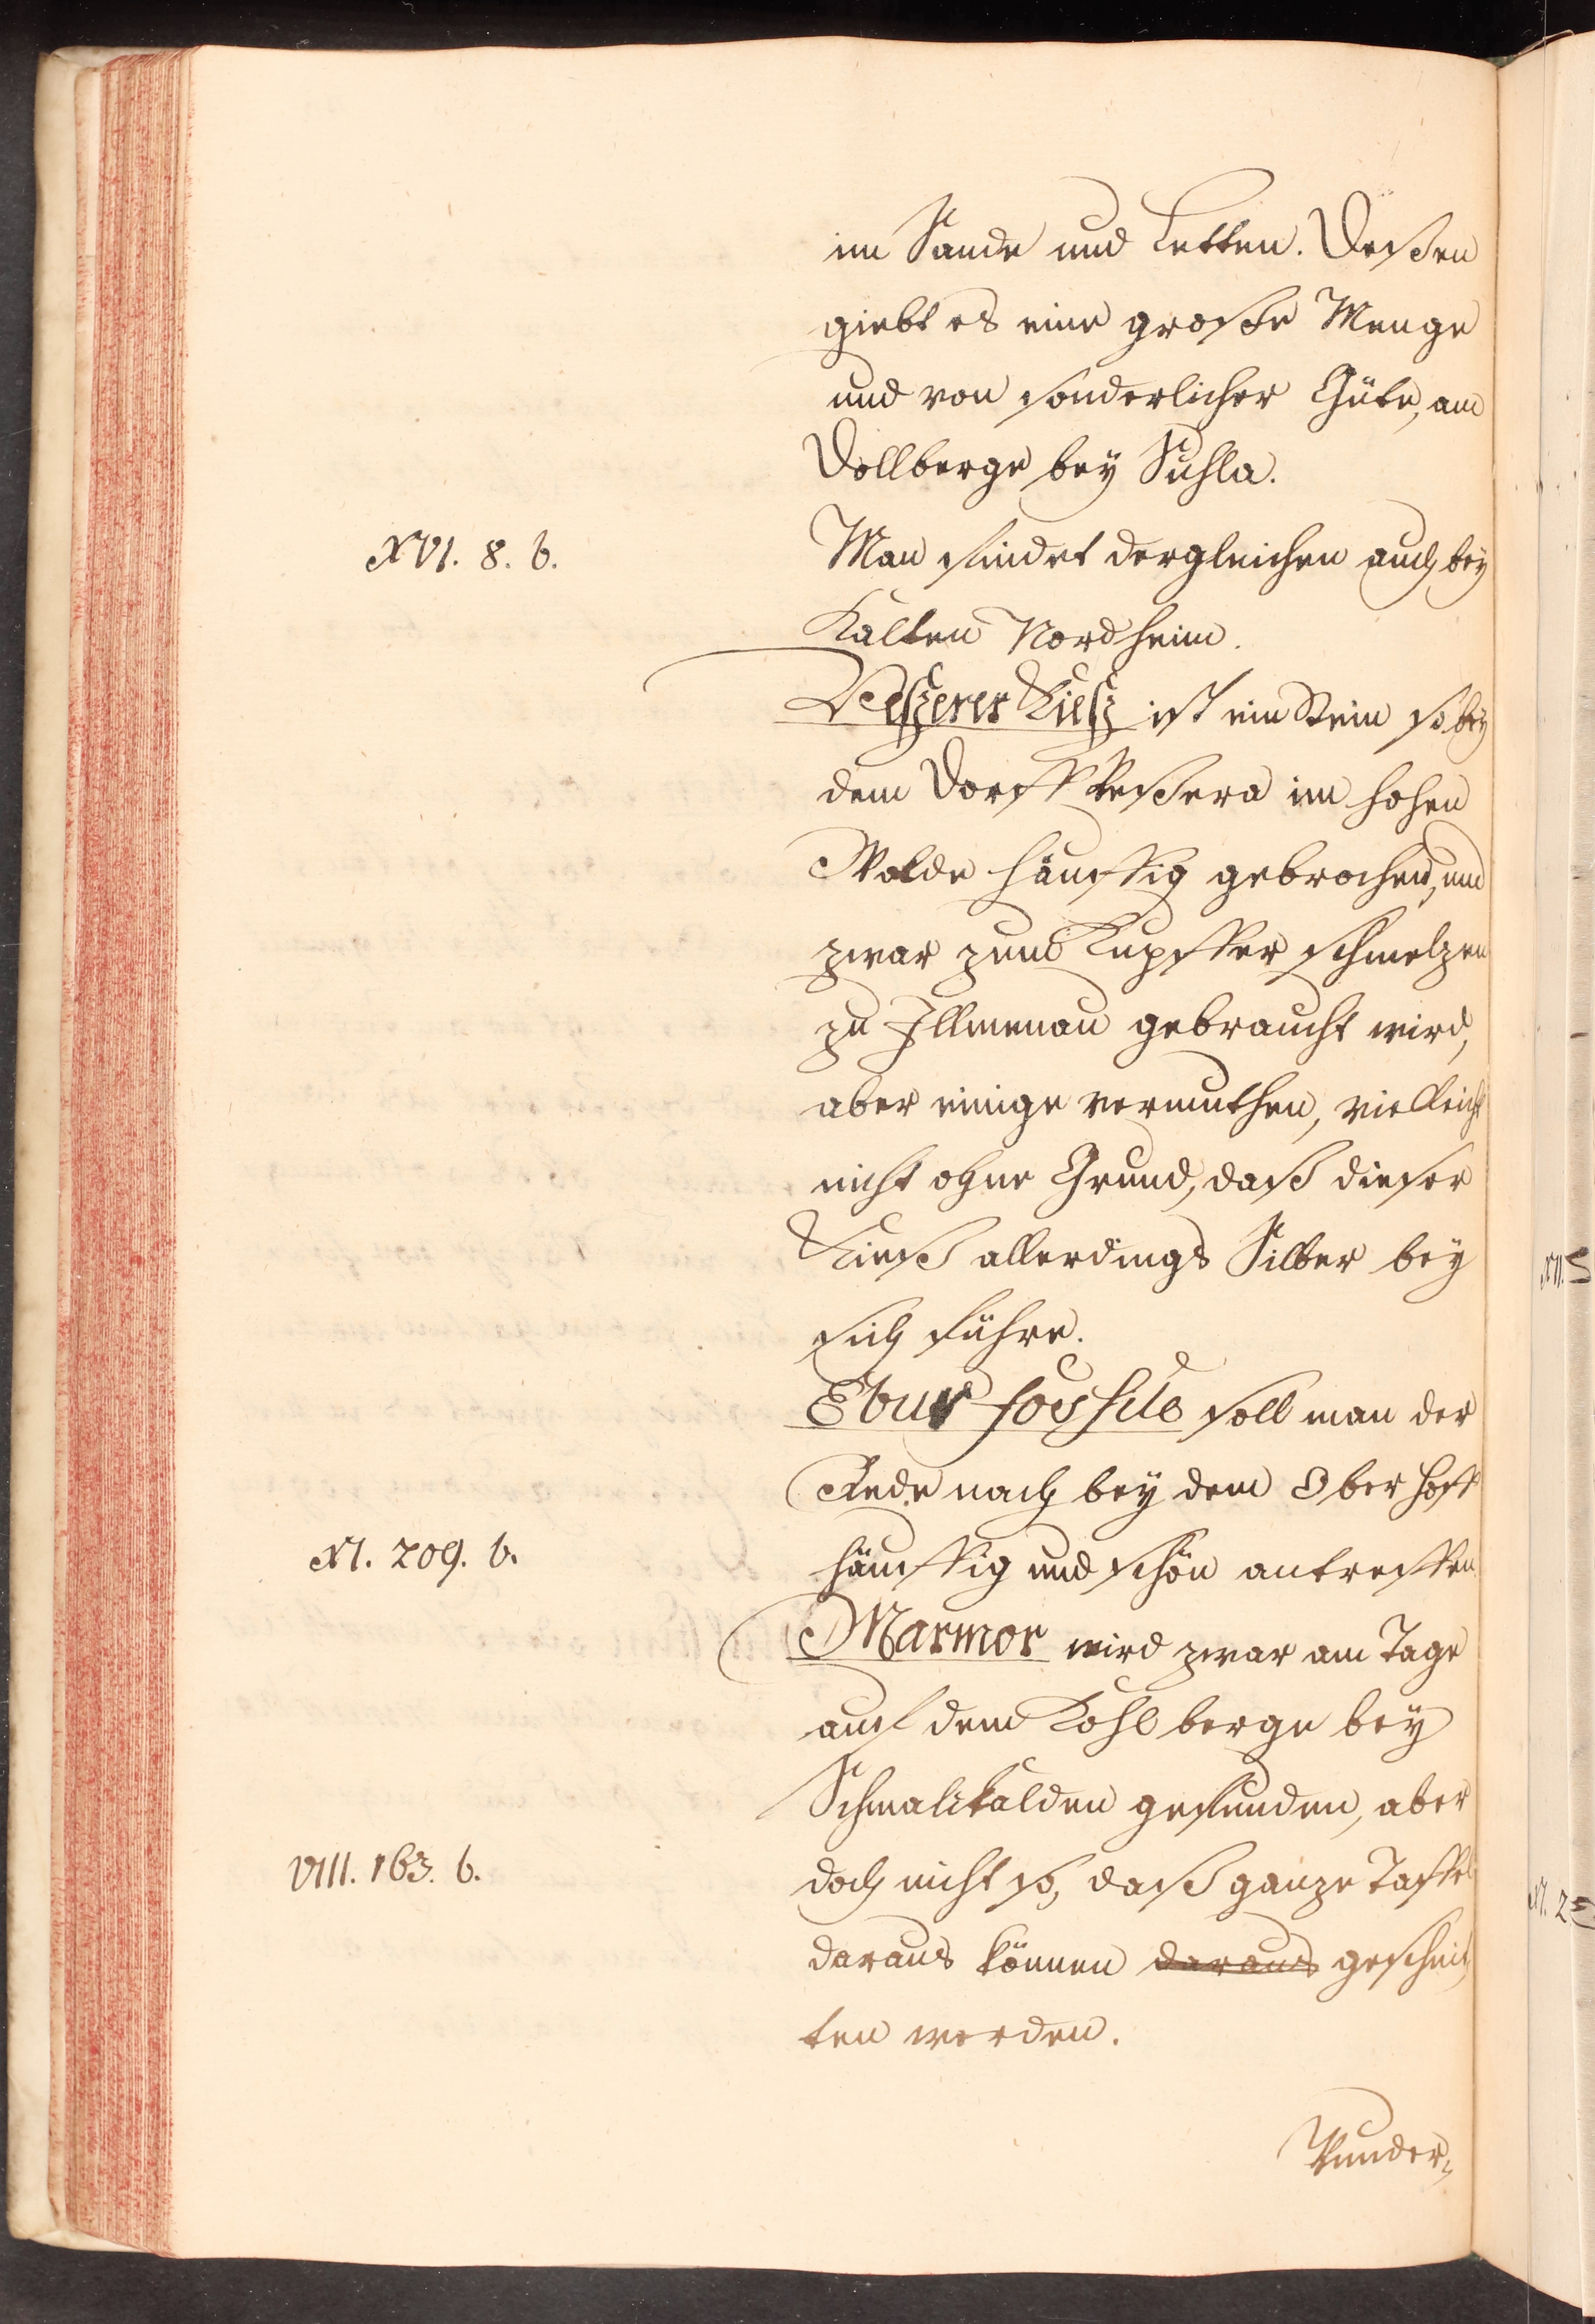 im Sande und Letten. Deßen
giebt es eine große Menge
und von sonderlicher Güte, am
Döllberge bey Suhla.
XVI. 8. b.
Man findet dergleichen auch bey
Kalten Nordheim.
Veßerer Kieß ist ein Stein so bey
dem Dorff Veßera im hohen
Walde häuffig gebrochen, und
zwar zum Kupffer schmelzen
zu Illmenau gebraucht wird,
aber einige vermuthen, vielleicht
nicht ohne Grund, daß dieser
Kieß allerdings Silber bey
sich führe.
Ebur fossile soll man der
Rede nach bey dem Ober Hoff
XI. 209. b.
häuffig und schön antreffen.
Marmor wird zwar am Tage
auf dem Kohlberge bey
Schmalkalden gefunden, aber
VIII. 163. b.
doch nicht so, daß ganze Taffel
daraus können daraus geschnit
ten werden.
Wunder,